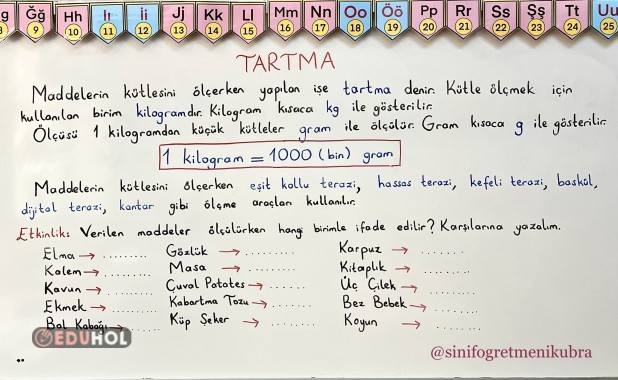 g Ğğ Hh Iı İi Jj Kk Ll Mm Nn Oo Öö Pp Rr Ss Şş Tt Uu
8 9 10 11 12 13 14 15 16 17 18 19 20 21 22 23 24 25
TARTMA
Maddelerin kütlesini ölçerken yapılan işe tartma denir. Kütle ölçmek için
kullanılan birim kilogramdır. Kilogram kısaca kg ile gösterilir.
Ölçüsü 1 kilogramdan küçük kütleler gram ile ölçülür. Gram kısaca g ile gösterilir.
1 kilogram = 1000 (bin) gram
Maddelerin kütlesini ölçerken eşit kollu terazi, hassas terazi, kefeli terazi, baskül,
dijital terazi, kantar gibi ölçme araçları kullanılır.
Etkinlik: Verilen maddeler ölçülürken hangi birimle ifade edilir? Karşılarına yazalım.
Elma → ........ Gözlük → ......... Karpuz → ........
Kalem → ........ Masa → ......... Kitaplık → ........
Kavun → ........ Çuval Patates → ........ Üç Çilek → ........
Ekmek → ........ Kabartma Tozu → ........ Bez Bebek → ........
Bal Kabağı → ........ Küp Şeker → ........ Koyun → ........
EDUHOL
@sinifogretmenikubra